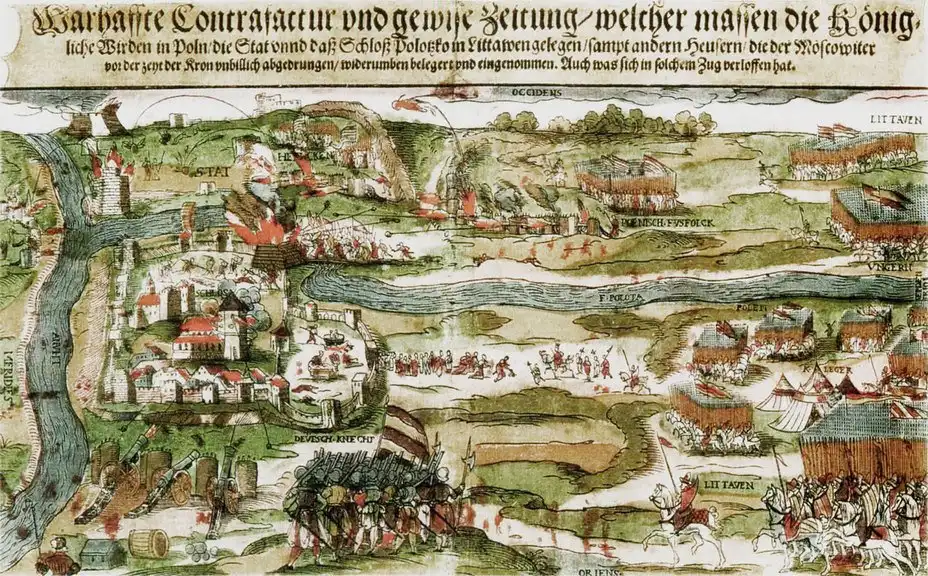 Warhaffte Contrafactur vnd gewise Zeitung / welcher massen die König-
liche Wirden in Poln / die Stat vnnd daß Schloß Polotzko in Littawen gelegen / sampt andern Heusern / die der Moscowiter
vor der zeyt der Kron vnbillich abgedrungen / widerumben belegert vnd eingenommen. Auch was sich in solchem Zug verloffen hat.
OCCIDENS
LITTAVEN
STAT
POENISCH·FVSFOLCK
VNGERN
F·POLOTA
POLEN
LEGER
DEVESCH·KNECHT
LITTAVEN
ORIENS